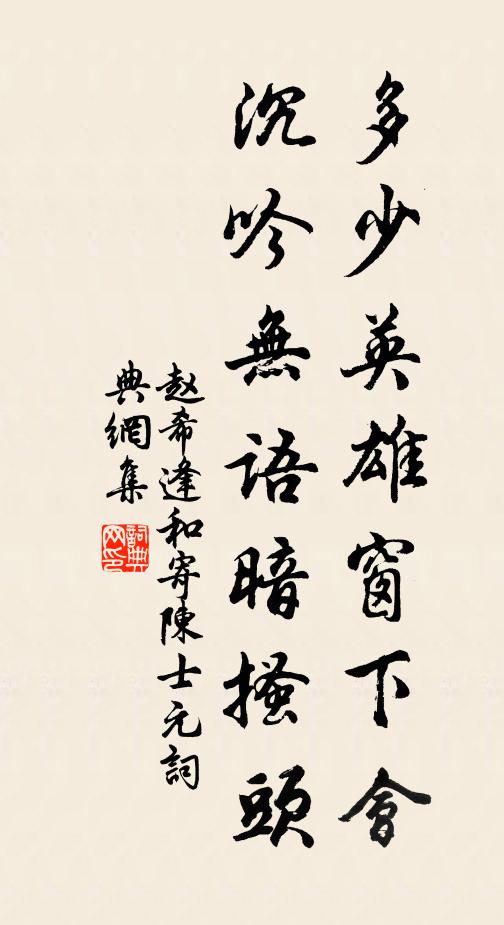 多少英雄窗下會
沉吟無語暗搔頭
赵希逢和寄陳士元詞
典網集
詞典
网印